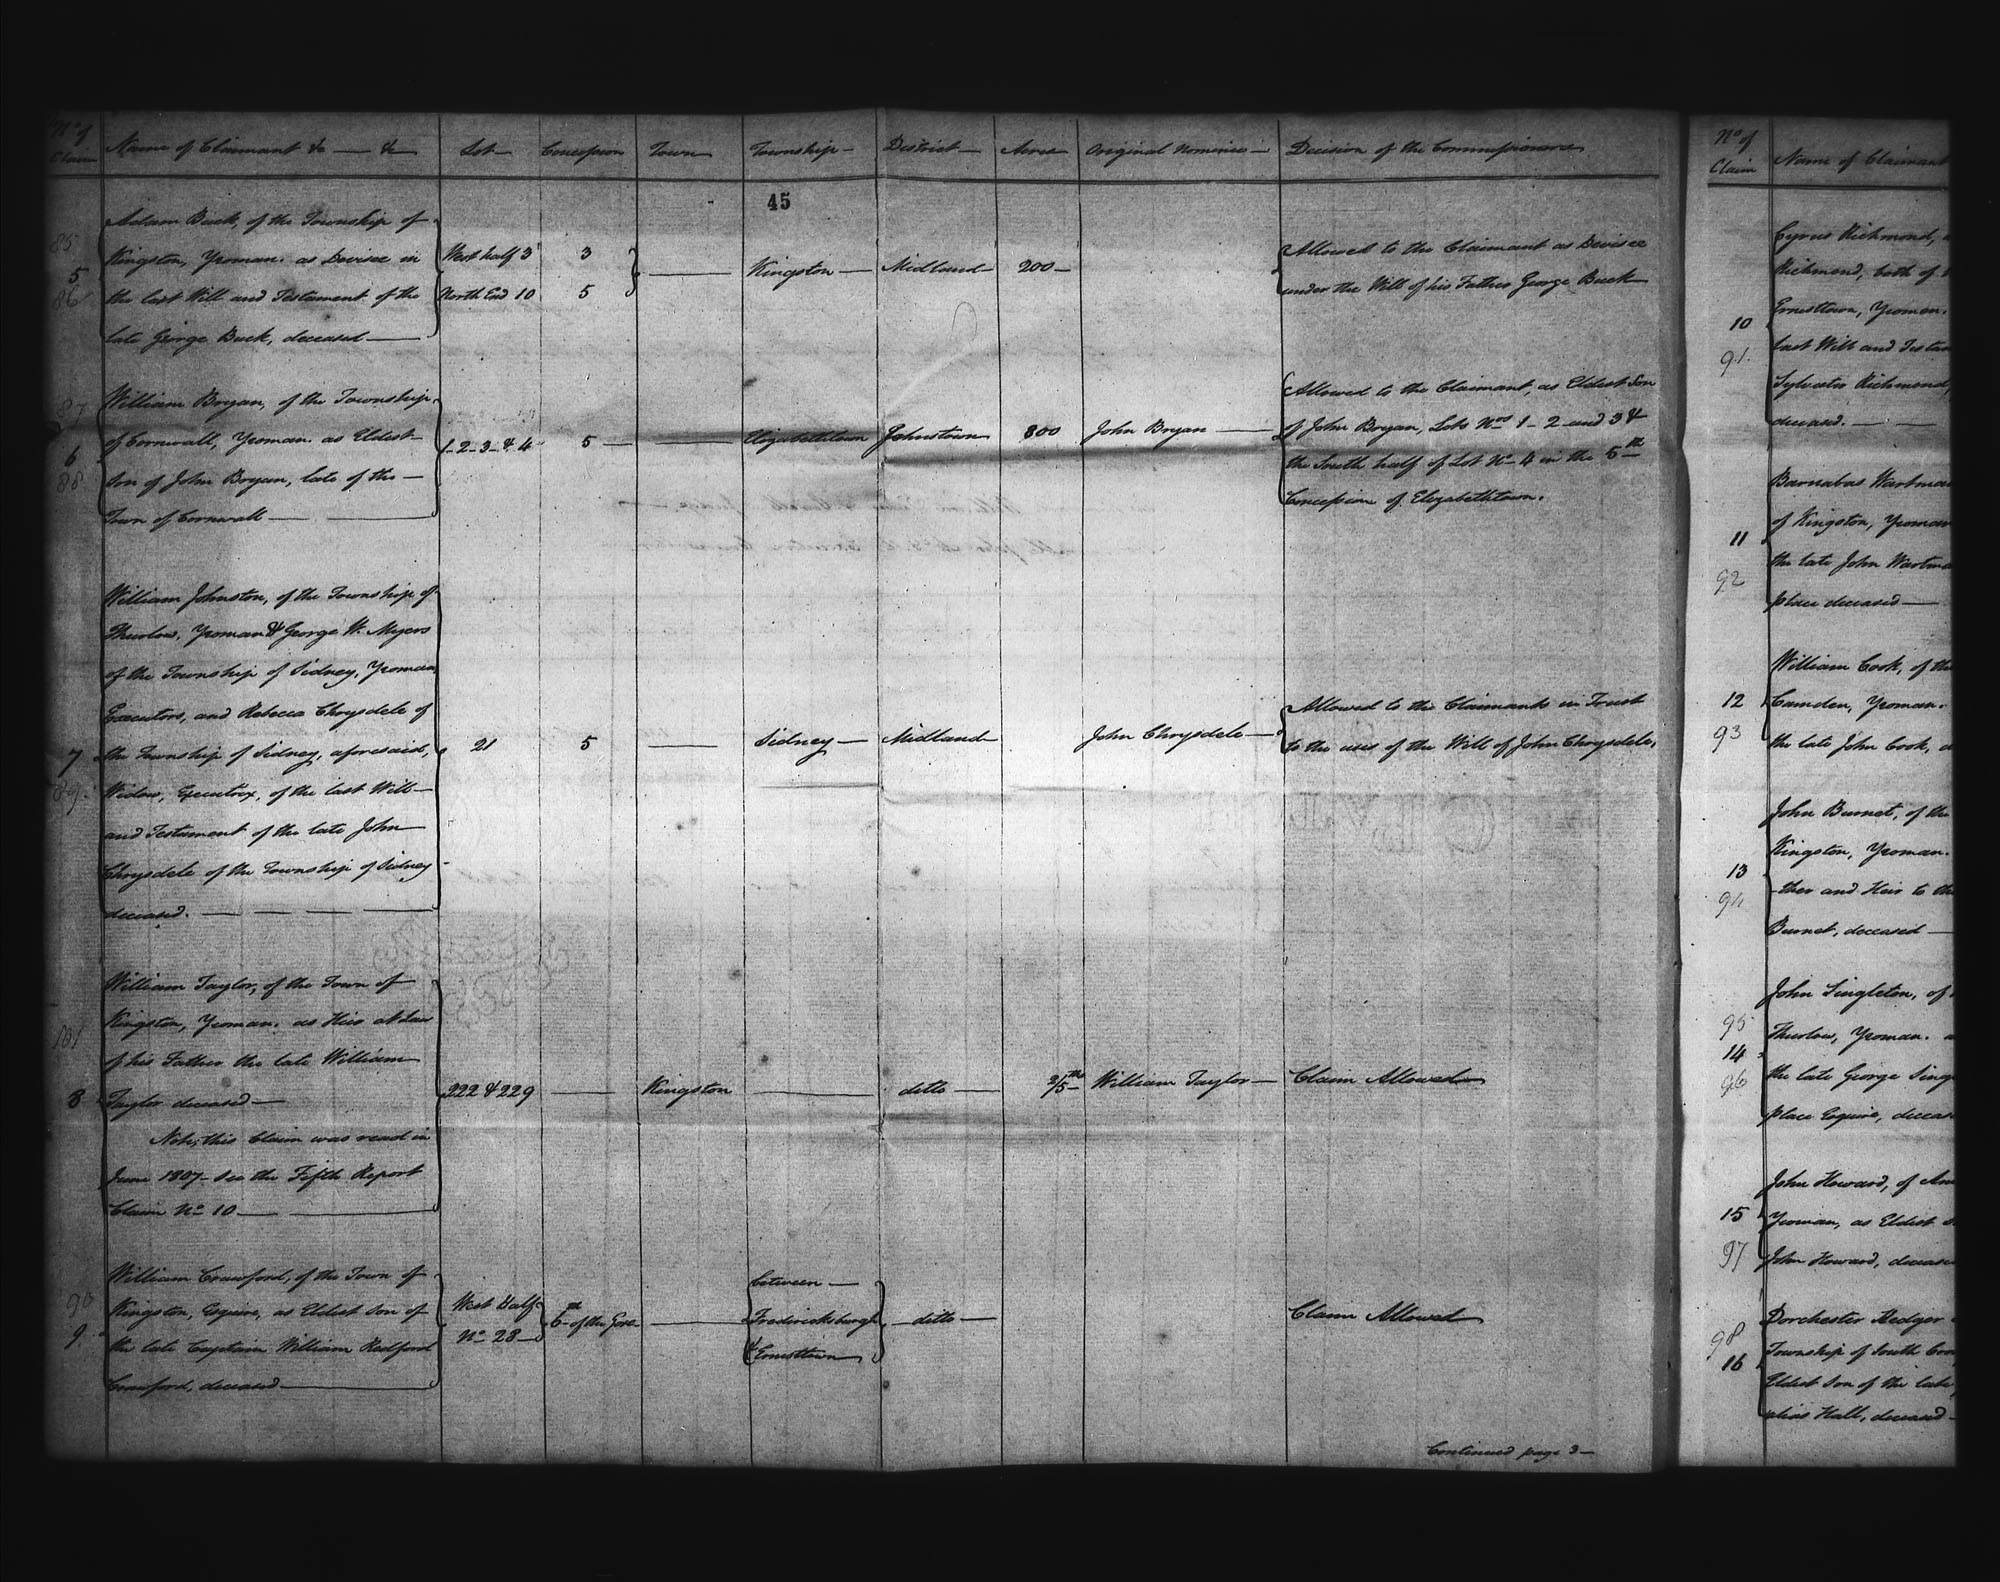 No of
Claim
Name of Claimant &c — &c
Lot
Concession
Town
Township
District
Acres
Original Nominee
Decision of the Commissioners
45
85
5
86
Adam Buck, of the Township of
Kingston, Yeoman. as Devisee in
the last Will and Testament of the
late George Buck, deceased
West half 3
North End 10
3
5
Kingston
Midland
200
Allowed to the Claimant as Devisee
under the Will of his Father George Buck
87
6
88
William Bryan, of the Township
of Cornwall, Yeoman. as Eldest
Son of John Bryan, late of the
Town of Cornwall
1-2-3-& 4
5
Elizabethtown
Johnstown
800
John Bryan
Allowed to the Claimant, as Eldest Son
of John Bryan, Lots Nos 1-2-and 3 &
the South half of Lot No 4 in the 5th
Concession of Elizabethtown.
7
89
William Johnston, of the Township of
Thurlow, Yeoman & George W. Myers
of the Township of Sidney, Yeoman,
Executors, and Rebecca Chrysdele of
the Township of Sidney, aforesaid,
Widow, Executrix, of the last Will
and Testament of the late John
Chrysdele of the Township of Sidney
deceased.
21
5
Sidney
Midland
John Chrysdele
Allowed to the Claimants in Trust
to the uses of the Will of John Chrysdele.
101
8
William Taylor, of the Town of
Kingston, Yeoman. as Heir at Law
of his Father the late William
Taylor deceased
Note; this Claim was read in
June 1807 - see the Fifth Report
Claim No 10
222 & 229
Kingston
ditto
2/5ths
William Taylor
Claim Allowed
90
9
William Crawford, of the Town of
Kingston, Esquire, as Eldest Son of
the late Captain William Redford
Crawford, deceased
West Half
No 28
6th of the Gore
between
Fredericksburgh
& Ernesttown
ditto
Claim Allowed
Continued page 3
No of
Claim
Name of Claimant
10
91
Cyrus Richmond,
Richmond, both of
Ernesttown, Yeoman.
last Will and Testam
Sylvester Richmond,
deceased.
11
92
Barnabas Wartman
of Kingston, Yeoman
the late John Wartma
place deceased
12
93
William Cook, of the
Camden, Yeoman.
the late John Cook,
13
94
John Burnet, of the
Kingston, Yeoman.
-ther and Heir to the
Burnet, deceased
95
14
96
John Singleton, of
Thurlow, Yeoman.
the late George Sing
place Esquire, deceas
15
97
John Howard, of
Yeoman, as Eldest
John Howard, deceas
98
16
Dorchester Hedger
Township of South
Eldest Son of the late
alias Hall, deceased